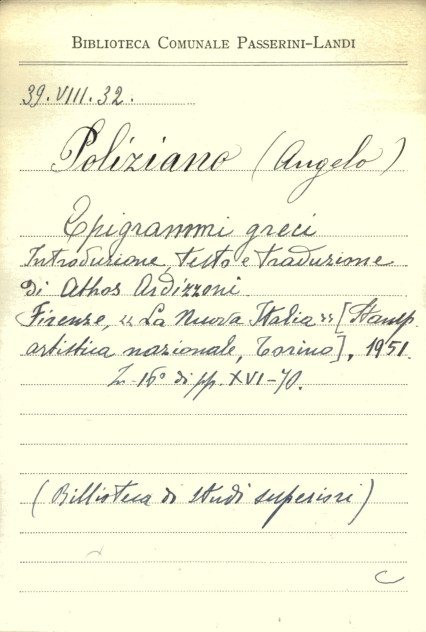 BIBLIOTECA COMUNALE PASSERINI-LANDI
39.VIII.32.
Poliziano (Angelo)
Epigrammi greci
Introduzione, testo e traduzione
di Athos Ardizzoni.
Firenze, "La Nuova Italia" [Stamp.
artistica nazionale, Torino], 1951.
In 16° di pp. XVI-70.
(Biblioteca di studi superiori)
C